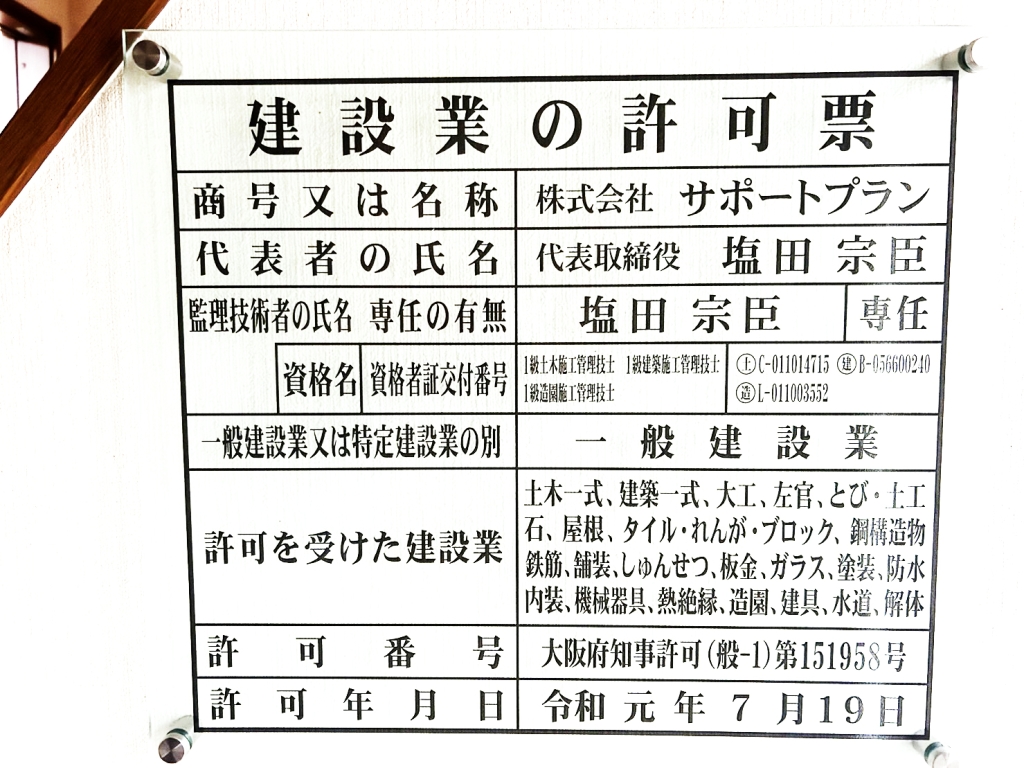 建設業の許可票
商号又は名称 株式会社 サポートプラン
代表者の氏名 代表取締役 塩田 宗臣
監理技術者の氏名 専任の有無 塩田 宗臣 専任
資格名 資格者証交付番号 1級土木施工管理技士 1級建築施工管理技士 ㊏C-011014715 ㊢B-056600240
1級造園施工管理技士 ㊢L-011003552
一般建設業又は特定建設業の別 一般建設業
許可を受けた建設業 土木一式、建築一式、大工、左官、とび・土工
石、屋根、タイル・れんが・ブロック、鋼構造物
鉄筋、舗装、しゅんせつ、板金、ガラス、塗装、防水
内装、機械器具、熱絶縁、造園、建具、水道、解体
許可番号 大阪府知事許可(般-1)第151958号
許可年月日 令和元年7月19日